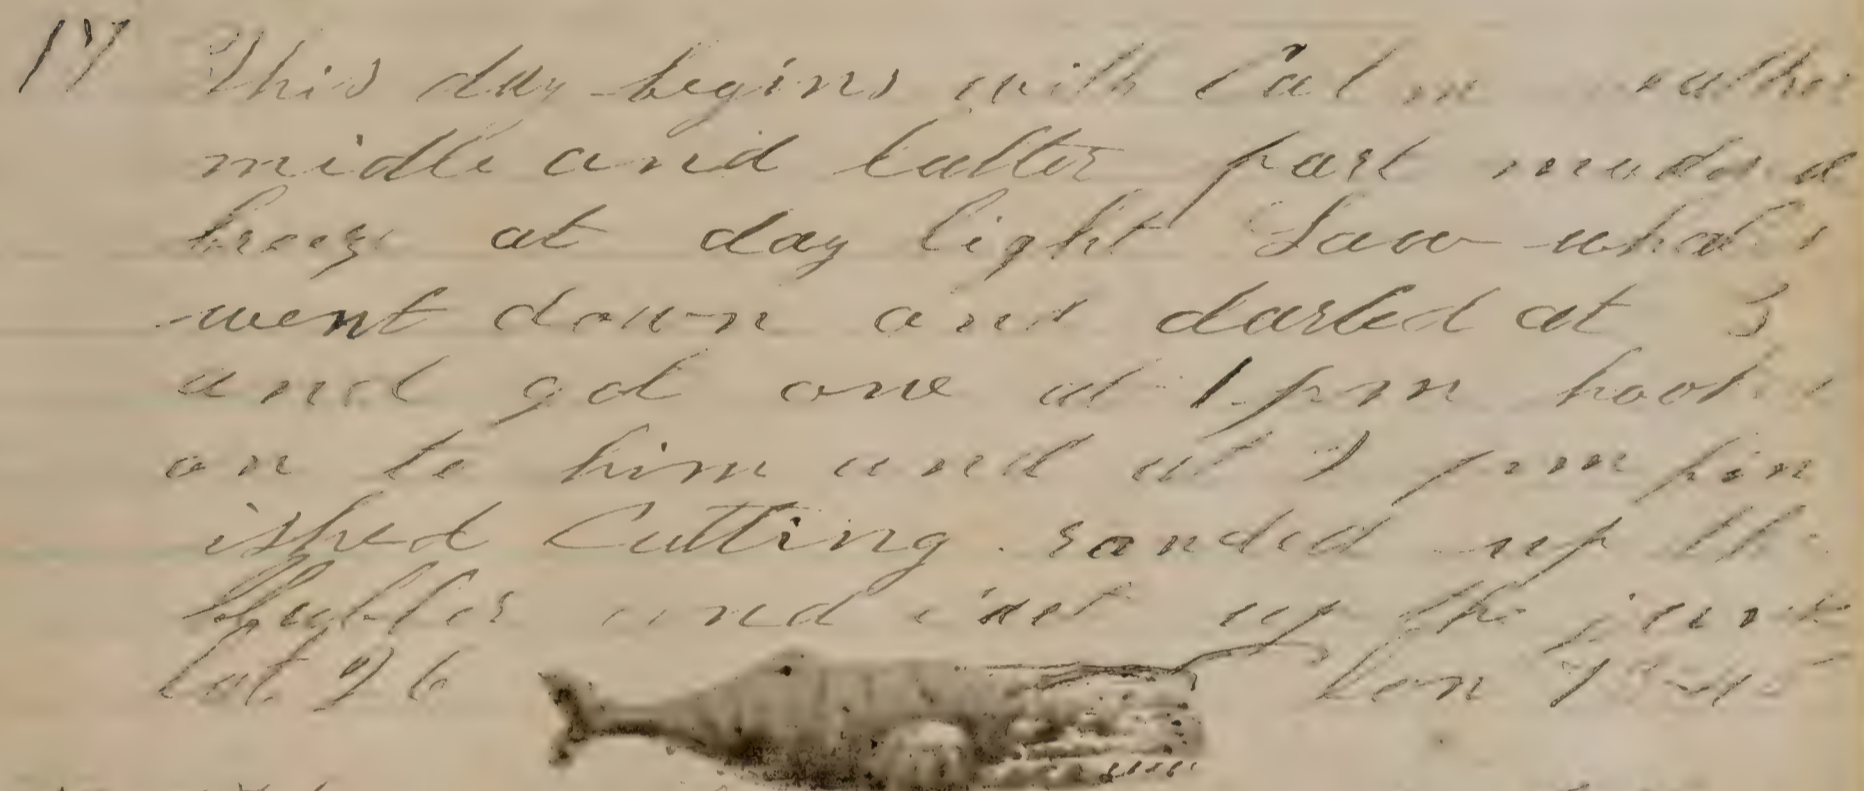 17 This day begins with Calm
midle and latter part
breeze at day light Saw
went down and darted at 3
and got one at 1 pm
on to him and at 7 pm fin
ished Cutting. sanded up the
blubber and cut up the junk
Lat 26 Lon